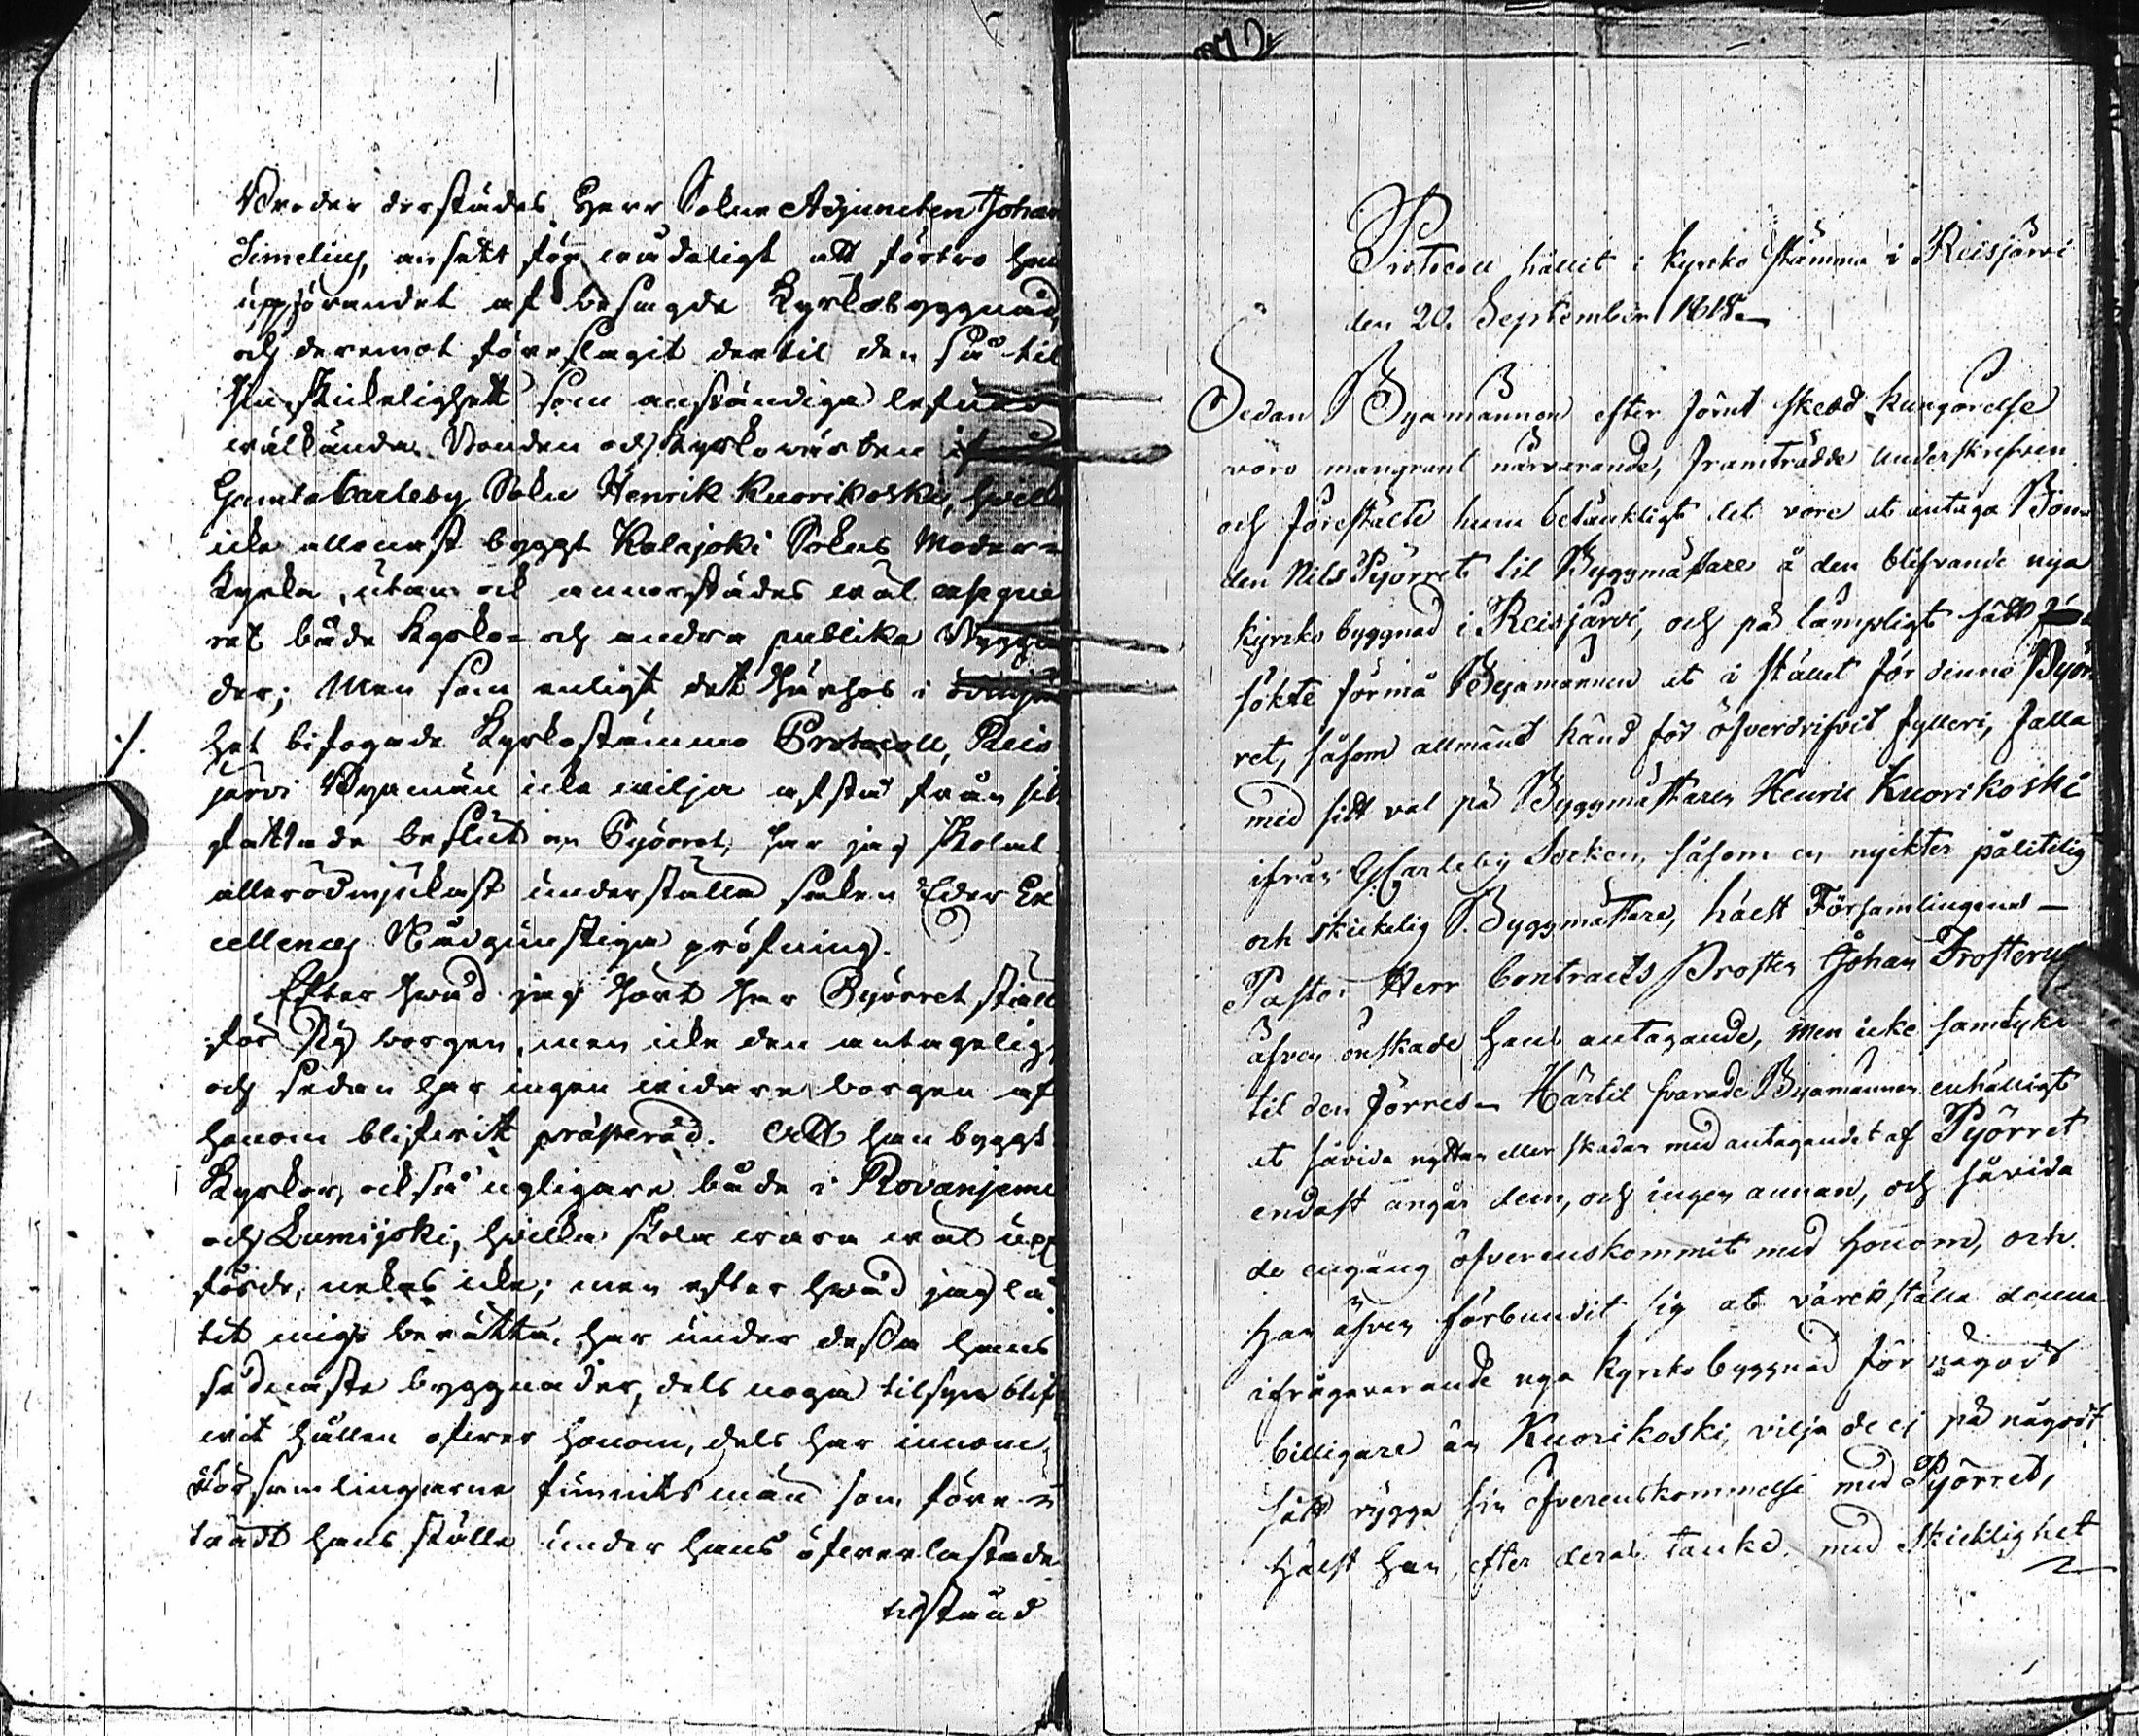 Broder derstädes Herr Sokne Adjuncten Johan
Simelius, ansett för wådeligt att förtro
uppförandet af besagde Kyrkobyggnad,
och deremot föreslagit dertil den så til
sin skickelighet som anständiga
wälkända Bonden och Kyrkowärden
Gamlacarleby Sokn Henrik Kuorikoski,
icke allenast byggt Kalajoki Sokns Moder-
kyrka, utan ock annorstädes wäl
rat både Kyrko- och andra publika
der; Men som enligt det härhos i
het bifogade Kyrkostämmo Protocoll, Reis
järvi Byamän icke wilja afstå från sit
fattade beslut om Pyörret, har jag skolat
allerödmjukast underställa saken Eder Ex
cellences Nådgunstiga pröfning.
Efter hwad jag hört har Pyörret stält
för sig borgen, men icke den antagelig,
och sedan har ingen widare borgen af
honom blifwit præsterad. Att han byggt
Kyrkor, också nyligare både i Rovanjemi
och Lumijoki, hwilka skola wara wäl upp
förde, nekas icke; men efter hwad jag lå
tit mig berätta, har under dessa hans
sednaste byggnader, dels noga tilsyn blif
wit hållen öfwer honom, dels har innom
Församlingarne funnits män som före-
trädt hans ställe under hans öfwerlastade
tilstånd
Protocoll hållit i Kyrko stämma i Reisjärvi
den 20. September 1818.
Sedan Byamännen efter förut skedd kungörelse
voro mangrant närvarande, framträdde Underskrefven
och föreställte huru betänkligt det vore at antaga Bon-
den Nils Pyörret til Byggmästare å den blifvande nya
kyrko byggnad i Reisjärvi, och på lämpligt sätt
sökte förmå Byamännen at i stället för denne Pyör
ret, såsom allmänt känd för öfverdrifvit fylleri, falla
med sitt val på Byggmästaren Henric Kuorikoski
ifrån GCarleby Socken, såsom en nyckter pålitelig
och skickelig Byggmästare, hälst Församlingens
Pastor Herr Contracts Prosten Johan Frosterus
äfven önskade hans antagande, men icke samtyckt
til den förres. Härtil svarade Byamännen enhälligt
at såvida nyttan eller skadan med antagandet af Pyörret
endast angår dem, och ingen annan, och såvida
de engång öfverenskommit med honom, och
han äfven förbundit sig at värckställa denna
ifrågavarande nya kyrko byggnad för någodt
billigare än Kuorikoski, vilja de ej på någodt
sätt rygga sin öfverenskommelse med Pyörret,
hälst han, efter deras tanke, med skicklighet